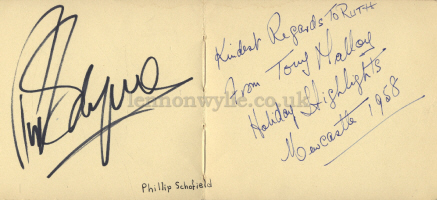 Phillip Schofield
Kindest Regards To RUTH
From Tony Malloy
Holiday Highlights
Newcastle 1968
lennonwylie.co.uk